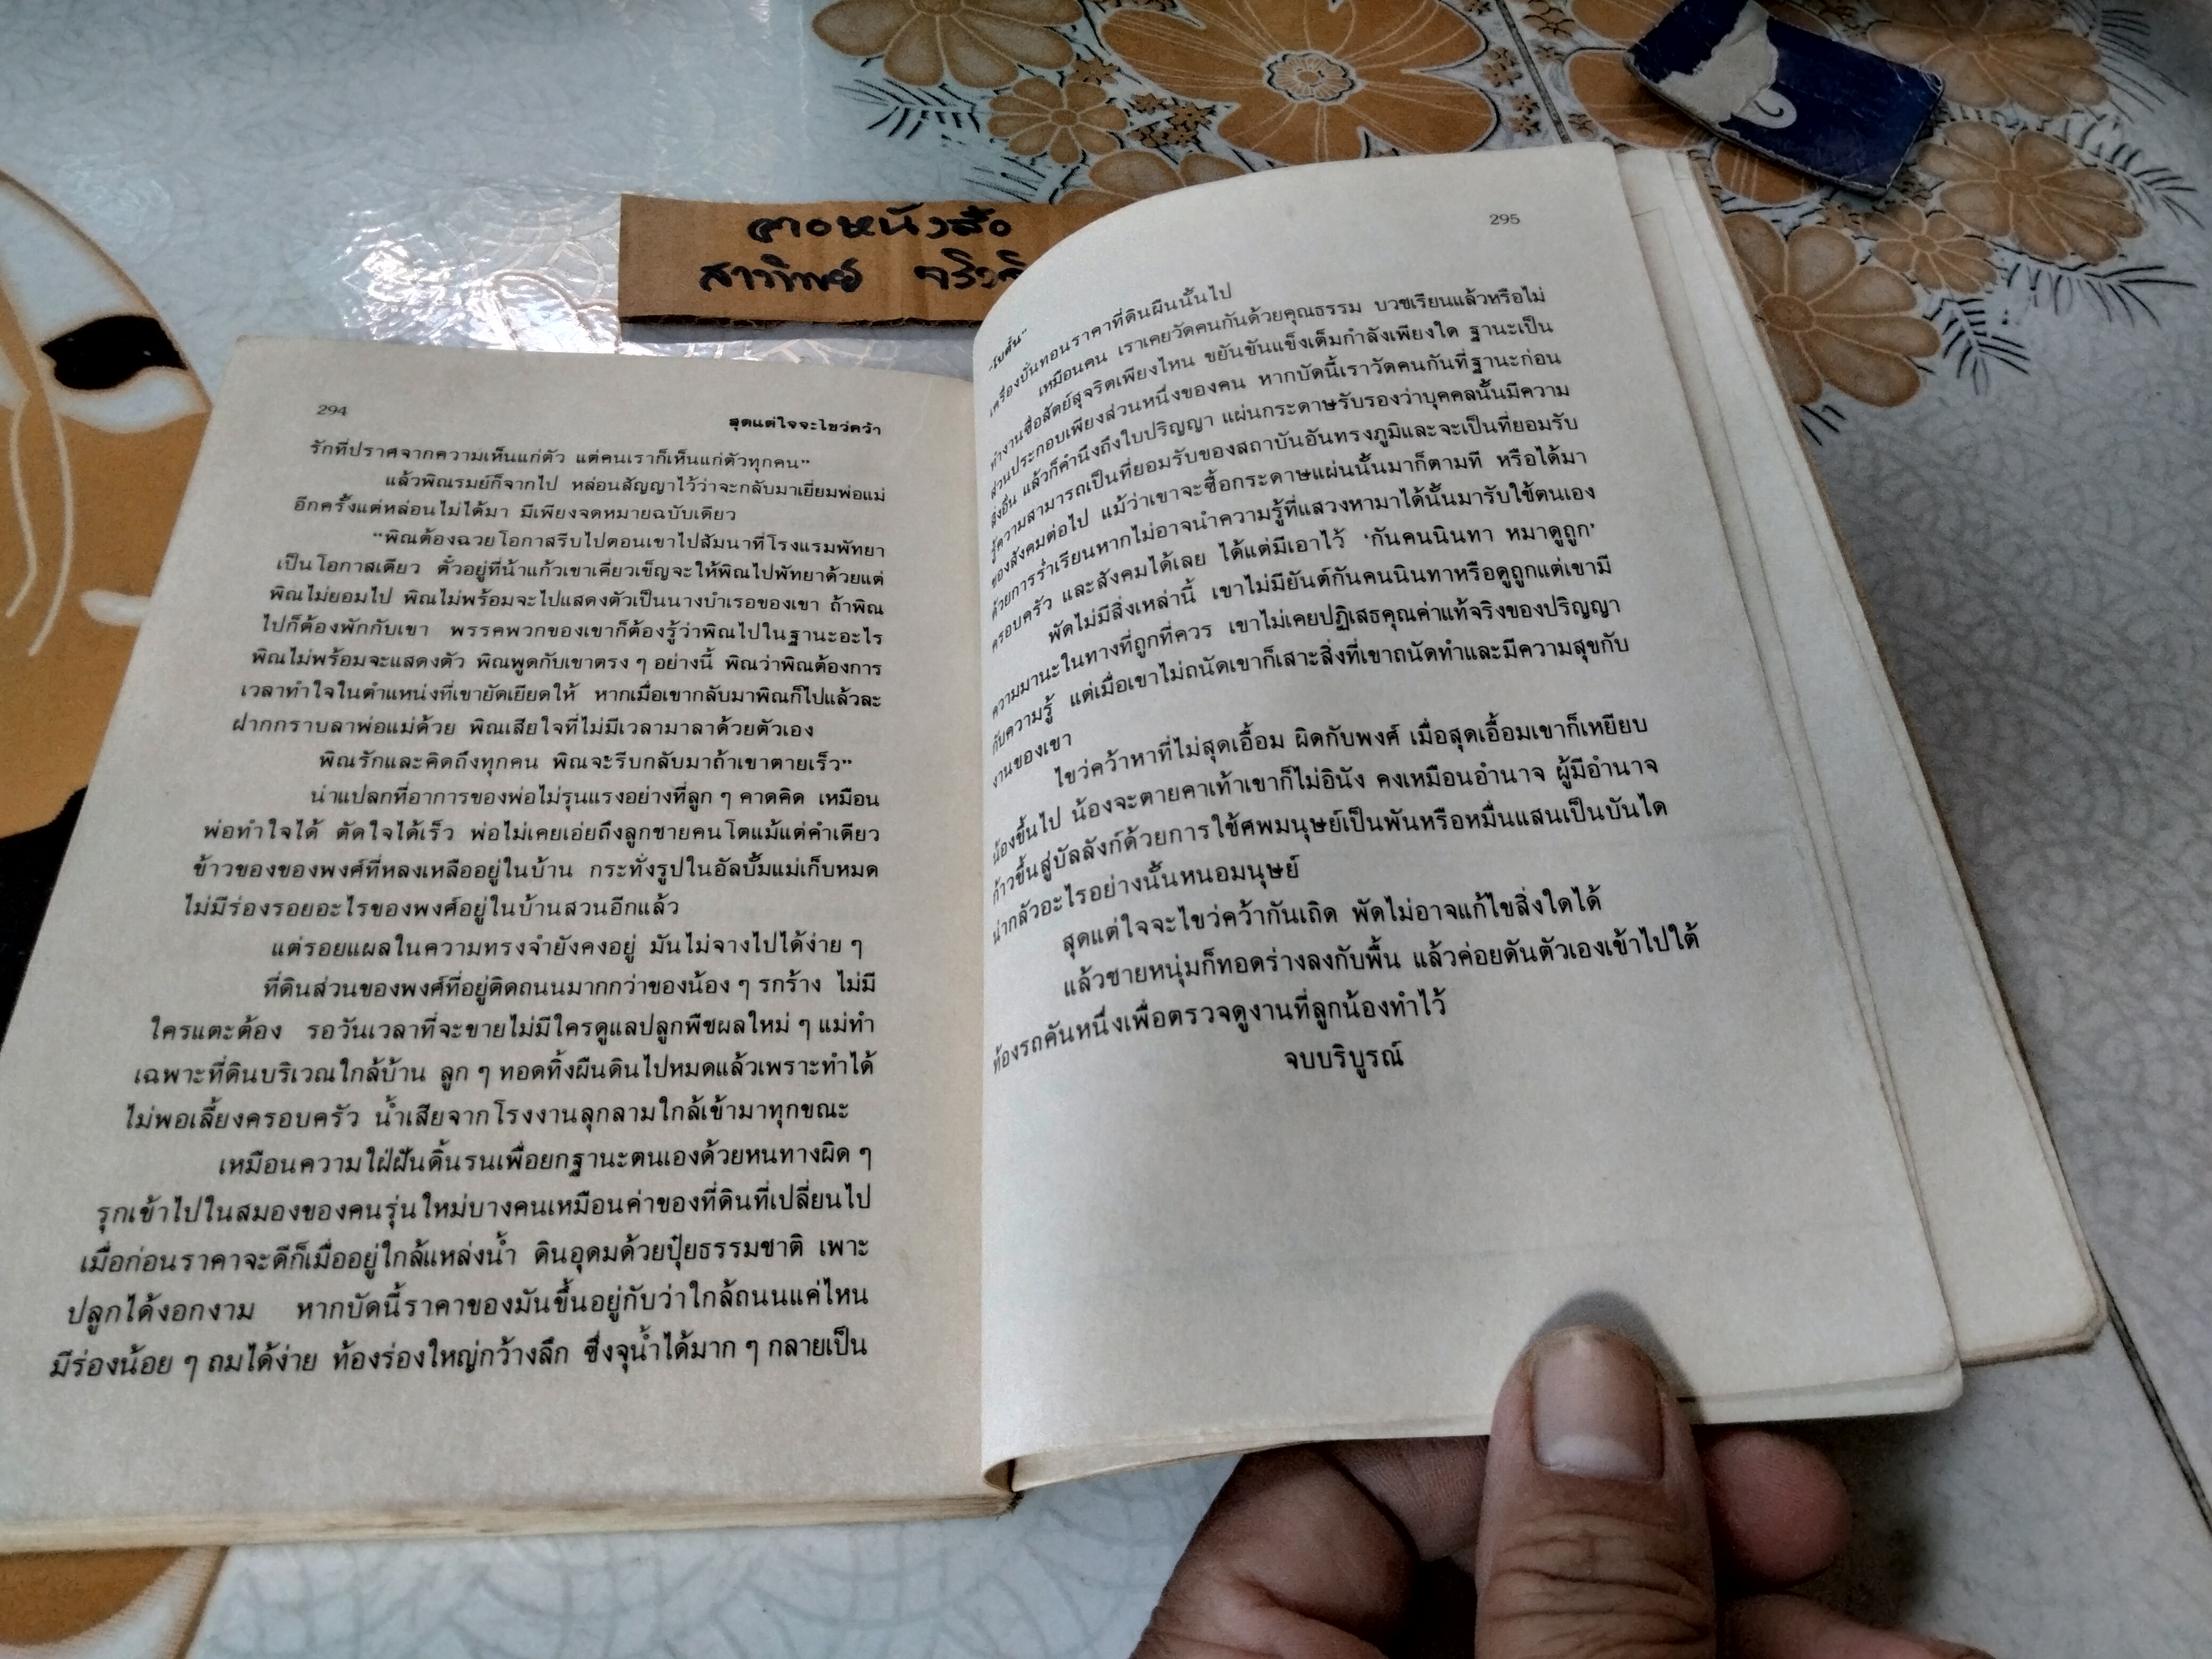 ฅอหนังสือ
สาวทิพย์
294
สุดแต่ใจจะไขว่คว้า
รักที่ปราศจากความเห็นแก่ตัว แต่คนเราก็เห็นแก่ตัวทุกคน"
แล้วพิณรมย์ก็จากไป หล่อนสัญญาไว้ว่าจะกลับมาเยี่ยมพ่อแม่
อีกครั้งแต่หล่อนไม่ได้มา มีเพียงจดหมายฉบับเดียว
"พิณต้องฉวยโอกาสรีบไปตอนเขาไปสัมนาที่โรงแรมพัทยา
เป็นโอกาสเดียว ตั๋วอยู่ที่น้าแก้วเขาเคี่ยวเข็ญจะให้พิณไปพัทยาด้วยแต่
พิณไม่ยอมไป พิณไม่พร้อมจะไปแสดงตัวเป็นนางบำเรอของเขา ถ้าพิณ
ไปก็ต้องพักกับเขา พรรคพวกของเขาก็ต้องรู้ว่าพิณไปในฐานะอะไร
พิณไม่พร้อมจะแสดงตัว พิณพูดกับเขาตรง ๆ อย่างนี้ พิณว่าพิณต้องการ
เวลาทำใจในตำแหน่งที่เขายัดเยียดให้ หากเมื่อเขากลับมาพิณก็ไปแล้วละ
ฝากกราบลาพ่อแม่ด้วย พิณเสียใจที่ไม่มีเวลามาลาด้วยตัวเอง
พิณรักและคิดถึงทุกคน พิณจะรีบกลับมาถ้าเขาตายเร็ว"
น่าแปลกที่อาการของพ่อไม่รุนแรงอย่างที่ลูก ๆ คาดคิด เหมือน
พ่อทำใจได้ ตัดใจได้เร็ว พ่อไม่เคยเอ่ยถึงลูกชายคนโตแม้แต่คำเดียว
ข้าวของของพงศ์ที่หลงเหลืออยู่ในบ้าน กระทั่งรูปในอัลบั้มแม่เก็บหมด
ไม่มีร่องรอยอะไรของพงศ์อยู่ในบ้านสวนอีกแล้ว
แต่รอยแผลในความทรงจำยังคงอยู่ มันไม่จางไปได้ง่าย ๆ
ที่ดินส่วนของพงศ์ที่อยู่ติดถนนมากกว่าของน้อง ๆ รกร้าง ไม่มี
ใครแตะต้อง รอวันเวลาที่จะขายไม่มีใครดูแลปลูกพืชผลใหม่ ๆ แม่ทำ
เฉพาะที่ดินบริเวณใกล้บ้าน ลูก ๆ ทอดทิ้งผืนดินไปหมดแล้วเพราะทำได้
ไม่พอเลี้ยงครอบครัว น้ำเสียจากโรงงานลุกลามใกล้เข้ามาทุกขณะ
เหมือนความใฝ่ฝันดิ้นรนเพื่อยกฐานะตนเองด้วยหนทางผิด ๆ
รุกเข้าไปในสมองของคนรุ่นใหม่บางคนเหมือนค่าของที่ดินที่เปลี่ยนไป
เมื่อก่อนราคาจะดีก็เมื่ออยู่ใกล้แหล่งน้ำ ดินอุดมด้วยปุ๋ยธรรมชาติ เพาะ
ปลูกได้งอกงาม หากบัดนี้ราคาของมันขึ้นอยู่กับว่าใกล้ถนนแค่ไหน
มีร่องน้อย ๆ ถมได้ง่าย ท้องร่องใหญ่กว้างลึก ซึ่งจุน้ำได้มาก ๆ กลายเป็น
295
เครื่องบั่นทอนราคาที่ดินผืนนั้นไป
เหมือนคน เราเคยวัดคนกันด้วยคุณธรรม บวชเรียนแล้วหรือไม่
ทำงานซื่อสัตย์สุจริตเพียงไหน ขยันขันแข็งเต็มกำลังเพียงใด ฐานะเป็น
ส่วนประกอบเพียงส่วนหนึ่งของคน หากบัดนี้เราวัดคนกันที่ฐานะก่อน
สิ่งอื่น แล้วก็คำนึงถึงใบปริญญา แผ่นกระดาษรับรองว่าบุคคลนั้นมีความ
รู้ความสามารถเป็นที่ยอมรับของสถาบันอันทรงภูมิและจะเป็นที่ยอมรับ
ของสังคมต่อไป แม้ว่าเขาจะซื้อกระดาษแผ่นนั้นมาก็ตามที หรือได้มา
ด้วยการร่ำเรียนหากไม่อาจนำความรู้ที่แสวงหามาได้นั้นมารับใช้ตนเอง
ครอบครัว และสังคมได้เลย ได้แต่มีเอาไว้ 'กันคนนินทา หมาดูถูก'
พัดไม่มีสิ่งเหล่านี้ เขาไม่มียันต์กันคนนินทาหรือดูถูกแต่เขามี
ความมานะในทางที่ถูกที่ควร เขาไม่เคยปฏิเสธคุณค่าแท้จริงของปริญญา
กับความรู้ แต่เมื่อเขาไม่ถนัดเขาก็เสาะสิ่งที่เขาถนัดทำและมีความสุขกับ
งานของเขา
ไขว่คว้าหาที่ไม่สุดเอื้อม ผิดกับพงศ์ เมื่อสุดเอื้อมเขาก็เหยียบ
น้องขึ้นไป น้องจะตายคาเท้าเขาก็ไม่อินัง คงเหมือนอำนาจ ผู้มีอำนาจ
ก้าวขึ้นสู่บัลลังก์ด้วยการใช้ศพมนุษย์เป็นพันหรือหมื่นแสนเป็นบันได
น่ากลัวอะไรอย่างนั้นหนอมนุษย์
สุดแต่ใจจะไขว่คว้ากันเถิด พัดไม่อาจแก้ไขสิ่งใดได้
แล้วชายหนุ่มก็ทอดร่างลงกับพื้น แล้วค่อยดันตัวเองเข้าไปใต้
ท้องรถคันหนึ่งเพื่อตรวจดูงานที่ลูกน้องทำไว้
จบบริบูรณ์